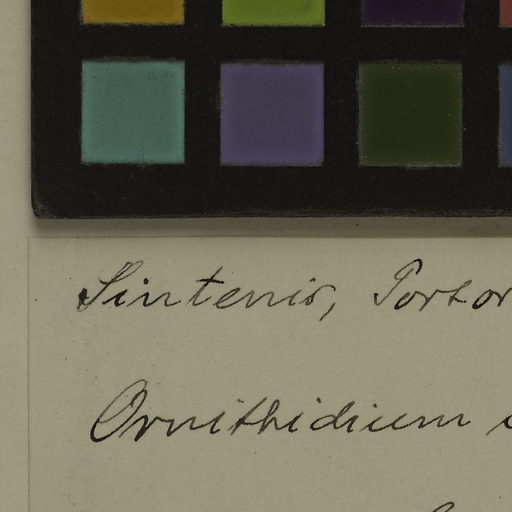 Sintenis, Portor
Ornithidium